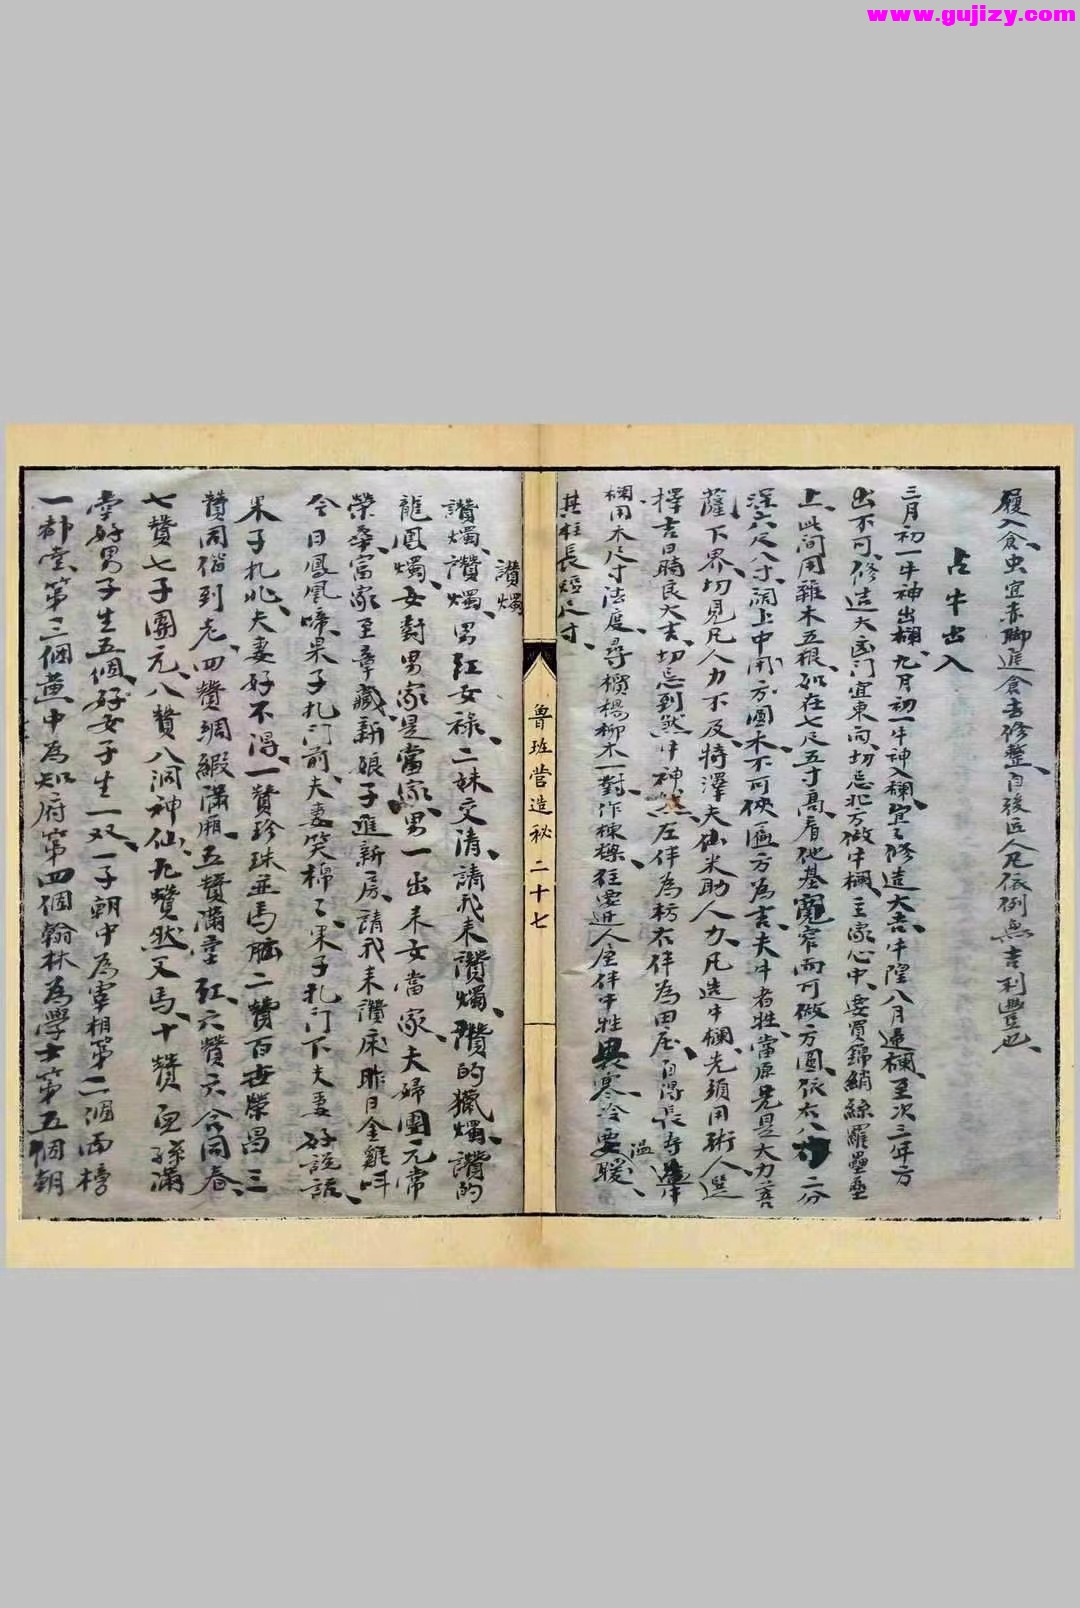 www.gujizy.com
履入倉虫宜赤脚進倉去修整自後匠人凡依例無吉利豐也
占牛出入
三月初一牛神出欄九月初一牛神入欄宜修造大吉牛隍八月還欄至次三年方
出不可修造大凶門宜東向切忌犯方做牛欄主家心中要買錦綃絲羅疊疊
上此間用雜木五根如在七尺五寸高看他基寬窄而可做方圓依古八寸二分
深六尺八寸闊上中用方圓木不可狹匾方為吉夫牛者牲當原先是大力菩
薩下界切見凡人力不及特澤夫仙米助人力凡造牛欄先須用術人選
擇吉日時良大吉切忌到煞牛神煞左伴為枋右伴為田庄自得長壽
欄用木尺寸法度尋櫝楊柳木一對作棟樑狂要近人屋伴牛牲畏寒冷要溫暖
其柱長短尺寸
魯班營造秘 二十七
讚燭
讚燭讚燭男紅女祿二妹交清請我来讚燭讚的獵燭讚的
龍鳳燭女對男家是當家男一出来女當家夫婦團元常
榮華富家至章藏新娘子進新房請我来讚床昨日金雞叫
今日鳳凰啼果子扎门前夫妻笑棉〻果子扎门下夫妻好說話
果子扎北夫妻好不得一贊珍珠並馬腦二贊百世榮昌三
贊同偕到老四贊綢緞滿廂五贊滿堂紅六贊六合同春
七贊七子團元八贊八洞神仙九贊状元馬十贊兒孫滿
堂好男子生五個好女子生一双一子朝中為宰相第二個両榜
一都堂第三個黄中為知府第四個翰林為學士第五個朝